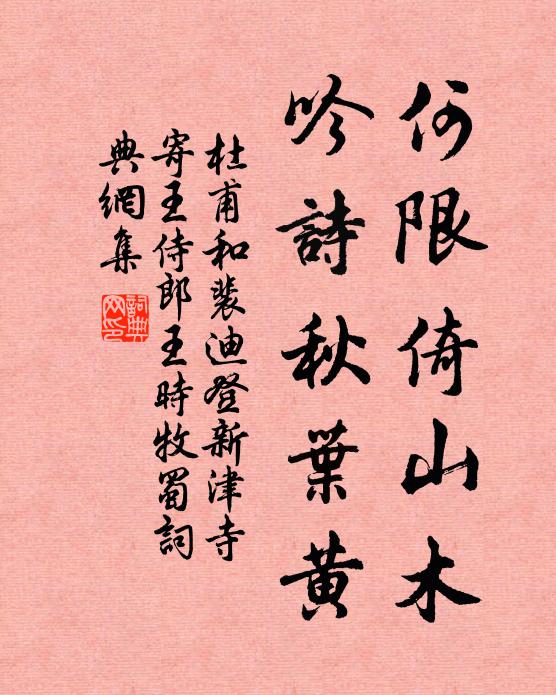 何限倚山木
吟詩秋葉黄
杜甫和裴迪登新津寺
寄王侍郎王時牧蜀詞
典網集
詞典
网印